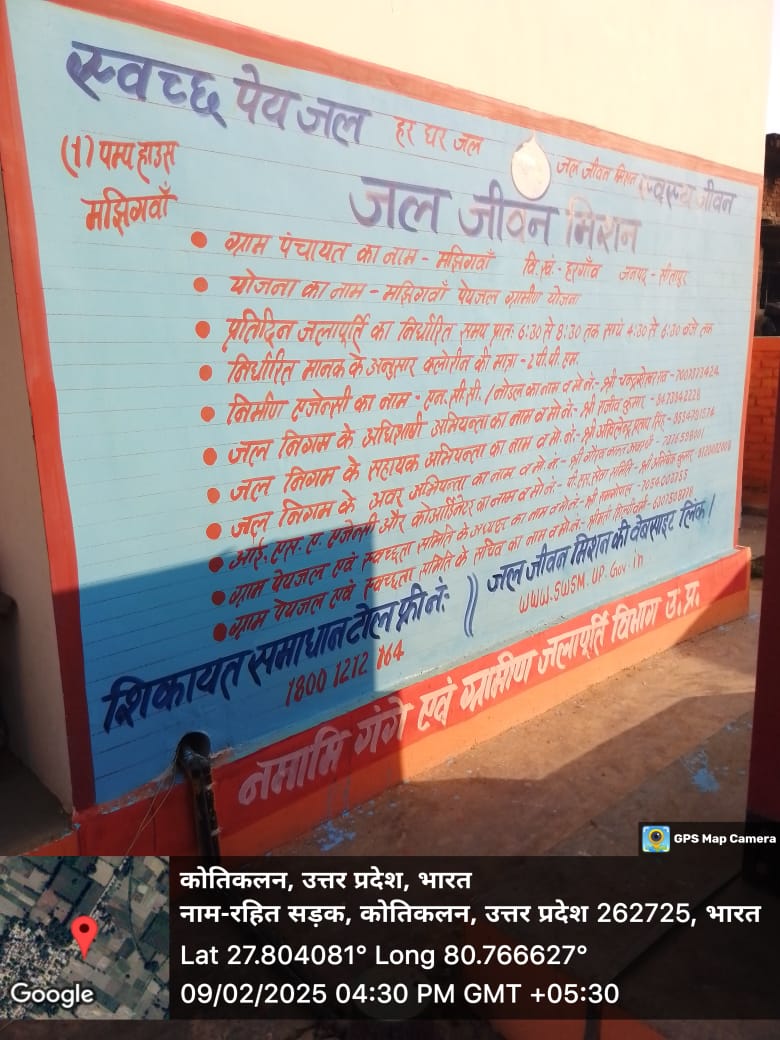 स्वच्छ पेय जल हर घर जल जल जीवन मिशन स्वस्थ्य जीवन
(1) पम्प हाउस
मझिगवाँ
जल जीवन मिशन
ग्राम पंचायत का नाम - मझिगवाँ वि.खं.- हरगाँव जनपद - सीतापुर
योजना का नाम - मझिगवाँ पेयजल ग्रामीण योजना
प्रतिदिन जलापूर्ति का निर्धारित समय प्रातः 6:30 से 8:30 तक सायं 4:30 से 6:30 बजे तक
निर्धारित मानक के अनुसार क्लोरीन की मात्रा - 2 पी.पी.एम.
निर्माण एजेन्सी का नाम - एन.सी.सी. / नोडल का नाम व मो नं:- श्री
जल निगम के अधिशाषी अभियन्ता का नाम व मो नं:- श्री राजीव कुमार -
जल निगम के सहायक अभियन्ता का नाम व मो नं:- श्री अखिलेन्द्र प्रताप सिंह -
जल निगम के अवर अभियन्ता का नाम व मो नं:- श्री
आई. एस. ए. एजेन्सी और कोआर्डिनेटर का नाम व मो नं:-
ग्राम पेयजल एवं स्वच्छता समिति के अध्यक्ष का नाम व मो नं:- श्री
ग्राम पेयजल एवं स्वच्छता समिति के सचिव का नाम व मो नं:-
शिकायत समाधान टोल फ्री नं:
1800 1212 164
जल जीवन मिशन की वेबसाइट लिंक /
www.swsm.up.gov.in
नमामि गंगे एवं ग्रामीण जलापूर्ति विभाग उ.प्र.
GPS Map Camera
कोतिकलन, उत्तर प्रदेश, भारत
नाम-रहित सड़क, कोतिकलन, उत्तर प्रदेश 262725, भारत
Lat 27.804081° Long 80.766627°
09/02/2025 04:30 PM GMT +05:30
Google